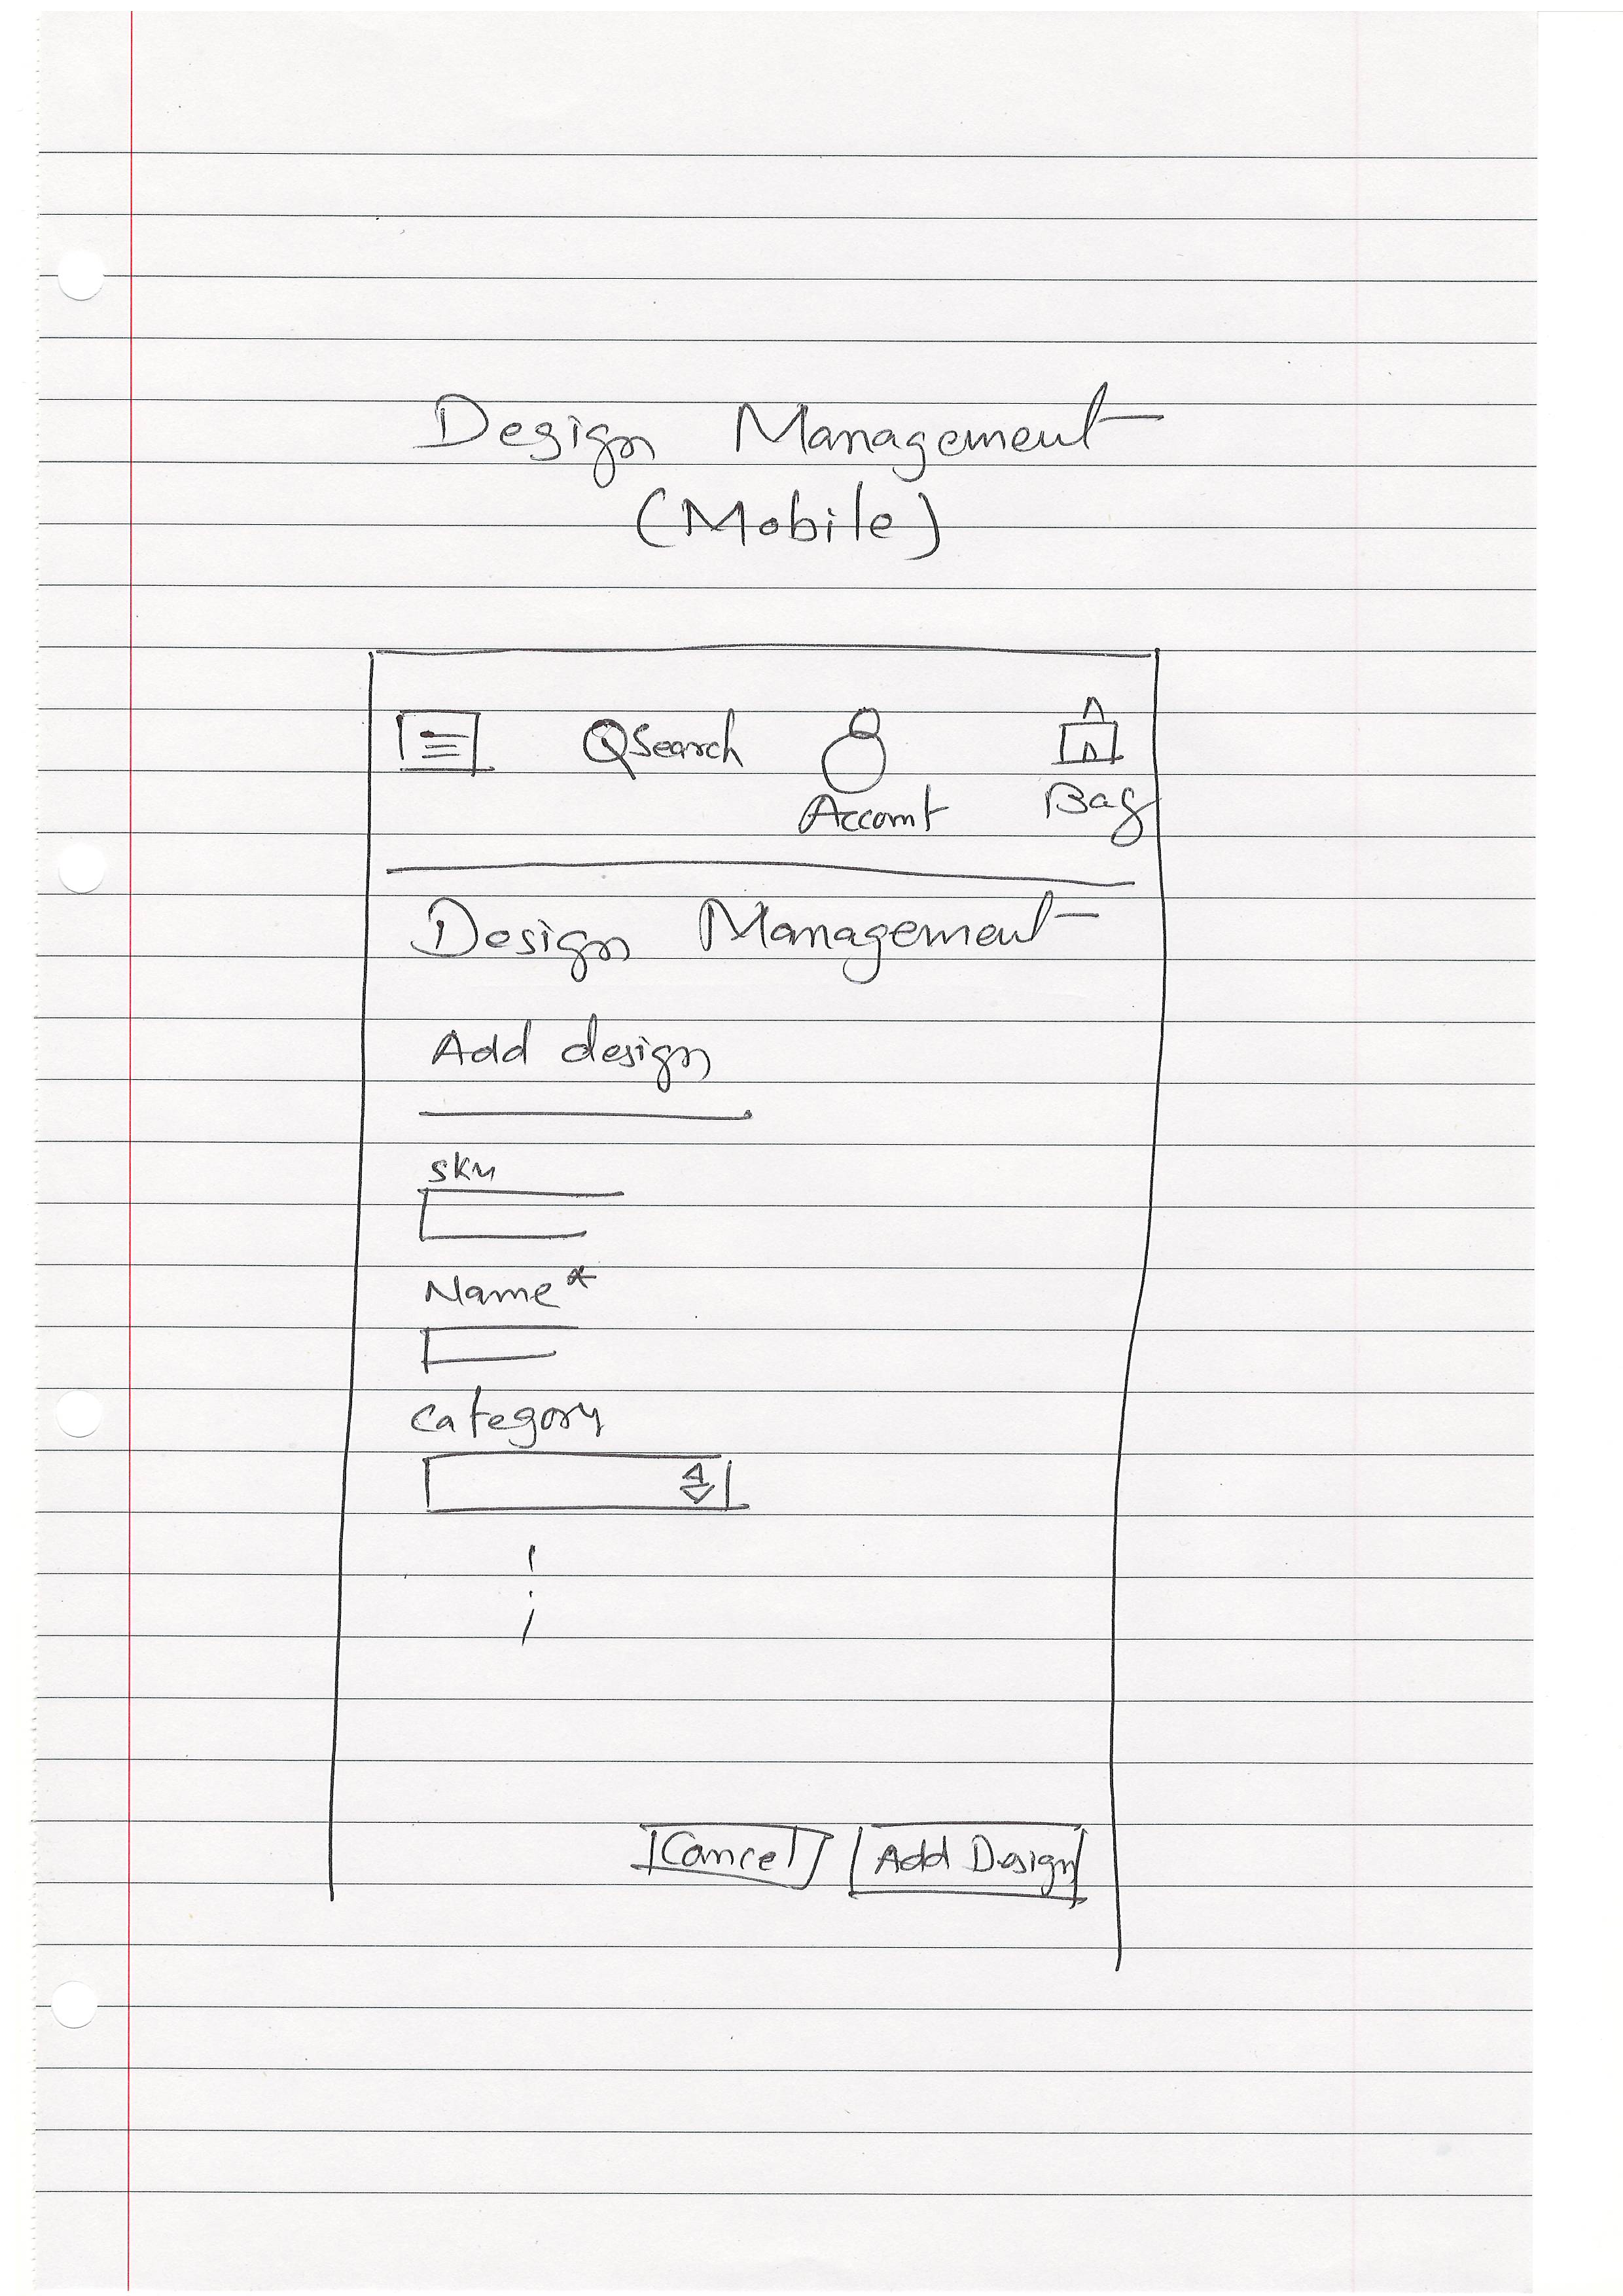 Design Management
(Mobile)
Search
Account
Bag
Design Management
Add design
sku
Name*
Category
Cancel
Add Design